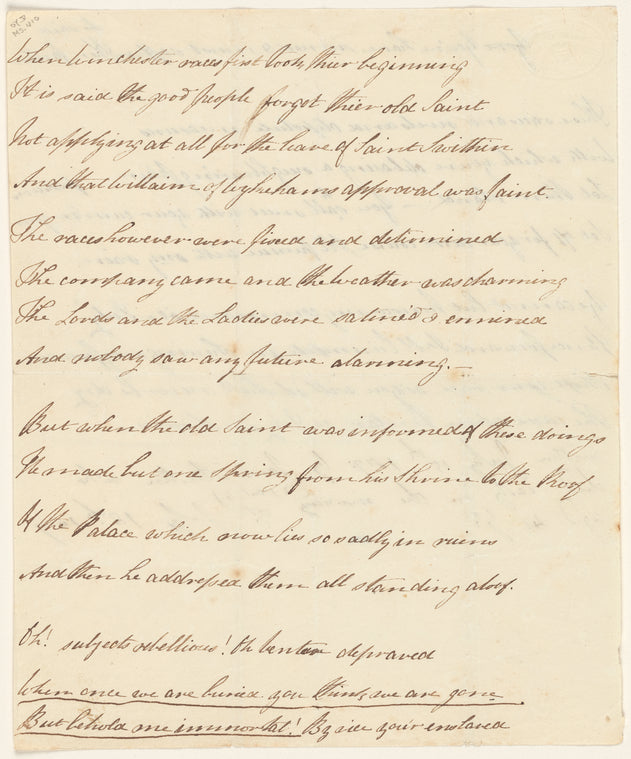 When Winchester races first took thier beginning
It is said the good people forgot thier old Saint
Not applying at all for the leave of Saint Swithin
And that William of Wykehams approval was faint.
The races however were fixed and determined
The company came and the Weather was charming
The Lords and the Ladies were satined & ermined
And nobody saw any future alarming.—
But when the old Saint was informed of these doings
He made but one Spring from his Shrine to the Roof
Of the Palace which now lies so sadly in ruins
And then he addressed them all standing aloof.
Oh! subjects rebellious! Oh Venta depraved
When once we are buried you think we are gone
But behold me immortal! By vice you're enslaved